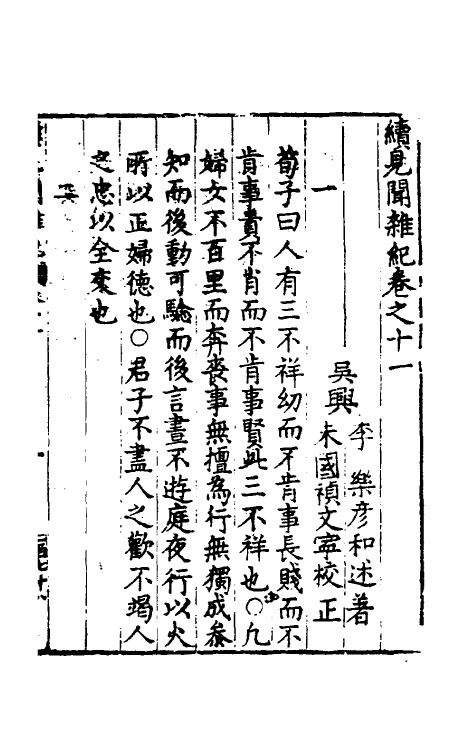 續見聞雜紀卷之十一
吳興
李樂彦和述著
朱國禎文寧校正
一
荀子曰人有三不祥幼而不肯事長賤而不
肯事貴不肖而不肯事賢此三不祥也○凡
婦女不百里而奔喪事無擅為行無獨成叅
知而後動可驗而後言晝不遊庭夜行以火
所以正婦德也○君子不盡人之歡不竭人
之忠以全交也